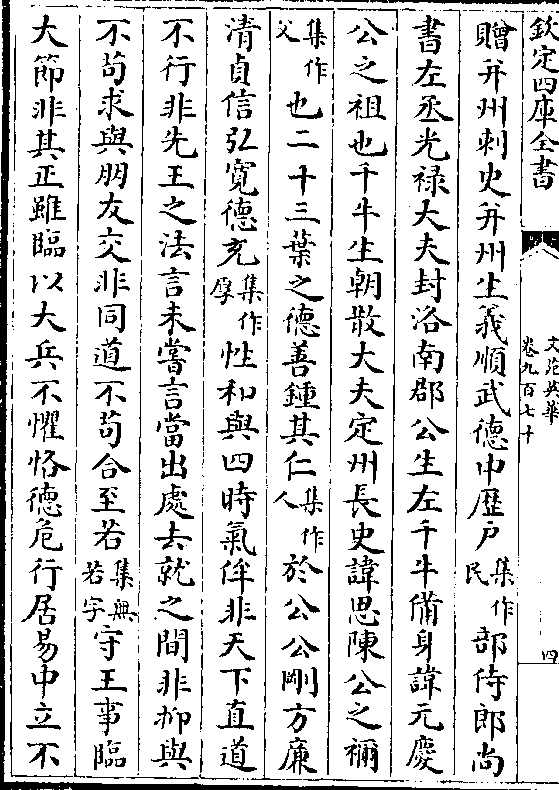 欽定四庫全書
文苑英華
卷九百七十
四
贈并州刺史并州生義順武德中歴户集作民部侍郎尚
書左丞光禄大夫封洛南郡公生左千牛備身諱元慶
公之祖也千牛生朝散大夫定州長史諱思陳公之禰
集作父也二十三葉之德善鍾其仁集作人於公公剛方廉
清貞信弘寛德充集作厚性和與四時氣侔非天下直道
不行非先王之法言未嘗言當出處去就之間非抑與
不苟求與朋友交非同道不苟合至若集無若字守王事臨
大節非其正雖臨以大兵不懼恪德危行居易中立不